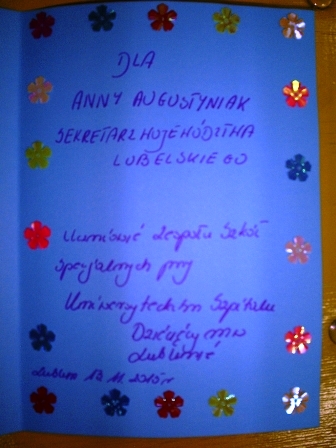 DLA
ANNY AUGUSTYNIAK
SEKRETARZ WOJEWÓDZTWA
LUBELSKIEGO
Uczniowie Zespołu Szkół
Specjalnych przy
Uniwersyteckim Szpitalu
Dziecięcym w
Lublinie
Lublin 12.11.2015r